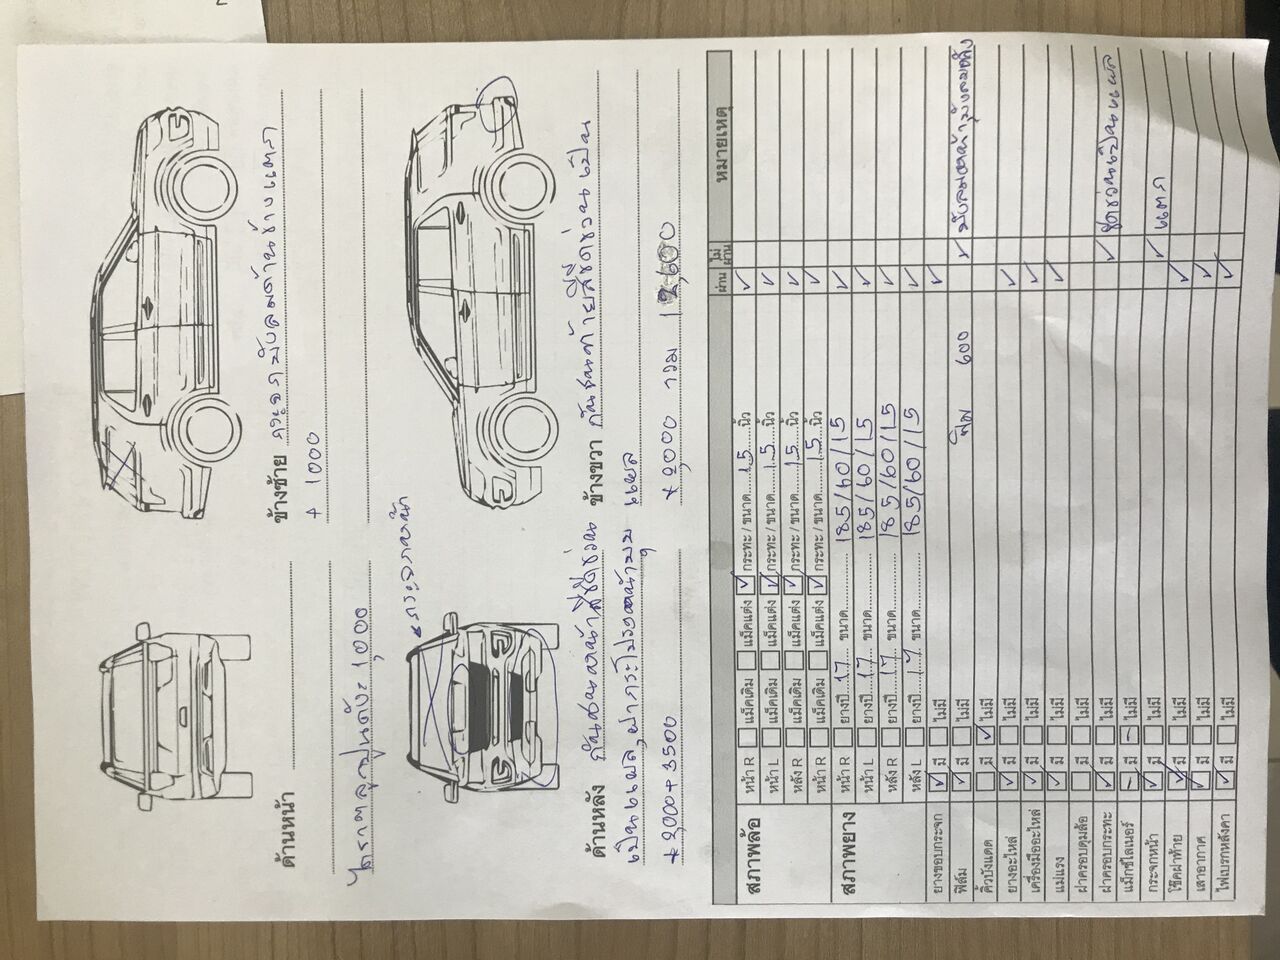 ด้านหน้า
ไดรถลุงปูนดังะ 1,000
ข้างซ้าย กระจกบังลมด้านข้างแตก
+ 1000
กระจกหน้า
ด้านหลัง กันชนหน้าสีซีดร่วน
เป็นแผล, ฝากระโปรงหน้าบุบ
+ 2,000 + 3500
ข้างขวา กันชนท้ายสีซีดร่วน เป็น
แผล
+ 2,000 รวม 12,600
ผ่าน ไม่ผ่าน หมายเหตุ
สภาพล้อ หน้า R แม็คเดิม แม็คแต่ง ✓ กระทะ / ขนาด 15 นิ้ว ✓
หน้า L แม็คเดิม แม็คแต่ง ✓ กระทะ / ขนาด 15 นิ้ว ✓
หลัง R แม็คเดิม แม็คแต่ง ✓ กระทะ / ขนาด 15 นิ้ว ✓
หน้า R แม็คเดิม แม็คแต่ง ✓ กระทะ / ขนาด 15 นิ้ว ✓
สภาพยาง หน้า R ยางปี 17 ขนาด 185/60/15 ✓
หน้า L ยางปี 17 ขนาด 185/60/15 ✓
หลัง R ยางปี 17 ขนาด 185/60/15 ✓
หลัง L ยางปี 17 ขนาด 185/60/15 ✓
ยางขอบกระจก ✓ มี ไม่มี ✓
ฟิล์ม ✓ มี ไม่มี ฟิล์ม 600 ✓
คิ้วบังแดด มี ✓ ไม่มี
ยางอะไหล่ ✓ มี ไม่มี ✓
เครื่องมืออะไหล่ ✓ มี ไม่มี ✓
แม่แรง ✓ มี ไม่มี ✓
ฝาครอบดุมล้อ มี ไม่มี
ฝาครอบกระทะ ✓ มี ไม่มี ✓ ซีดร่วนเป็นแผล
แม็กซ์ไลเนอร์ - มี - ไม่มี
กระจกหน้า ✓ มี ไม่มี ✓ แตก
โช๊คฝาท้าย ✓ มี ไม่มี ✓
เสาอากาศ ✓ มี ไม่มี ✓
ไฟเบรกหลังคา ✓ มี ไม่มี ✓